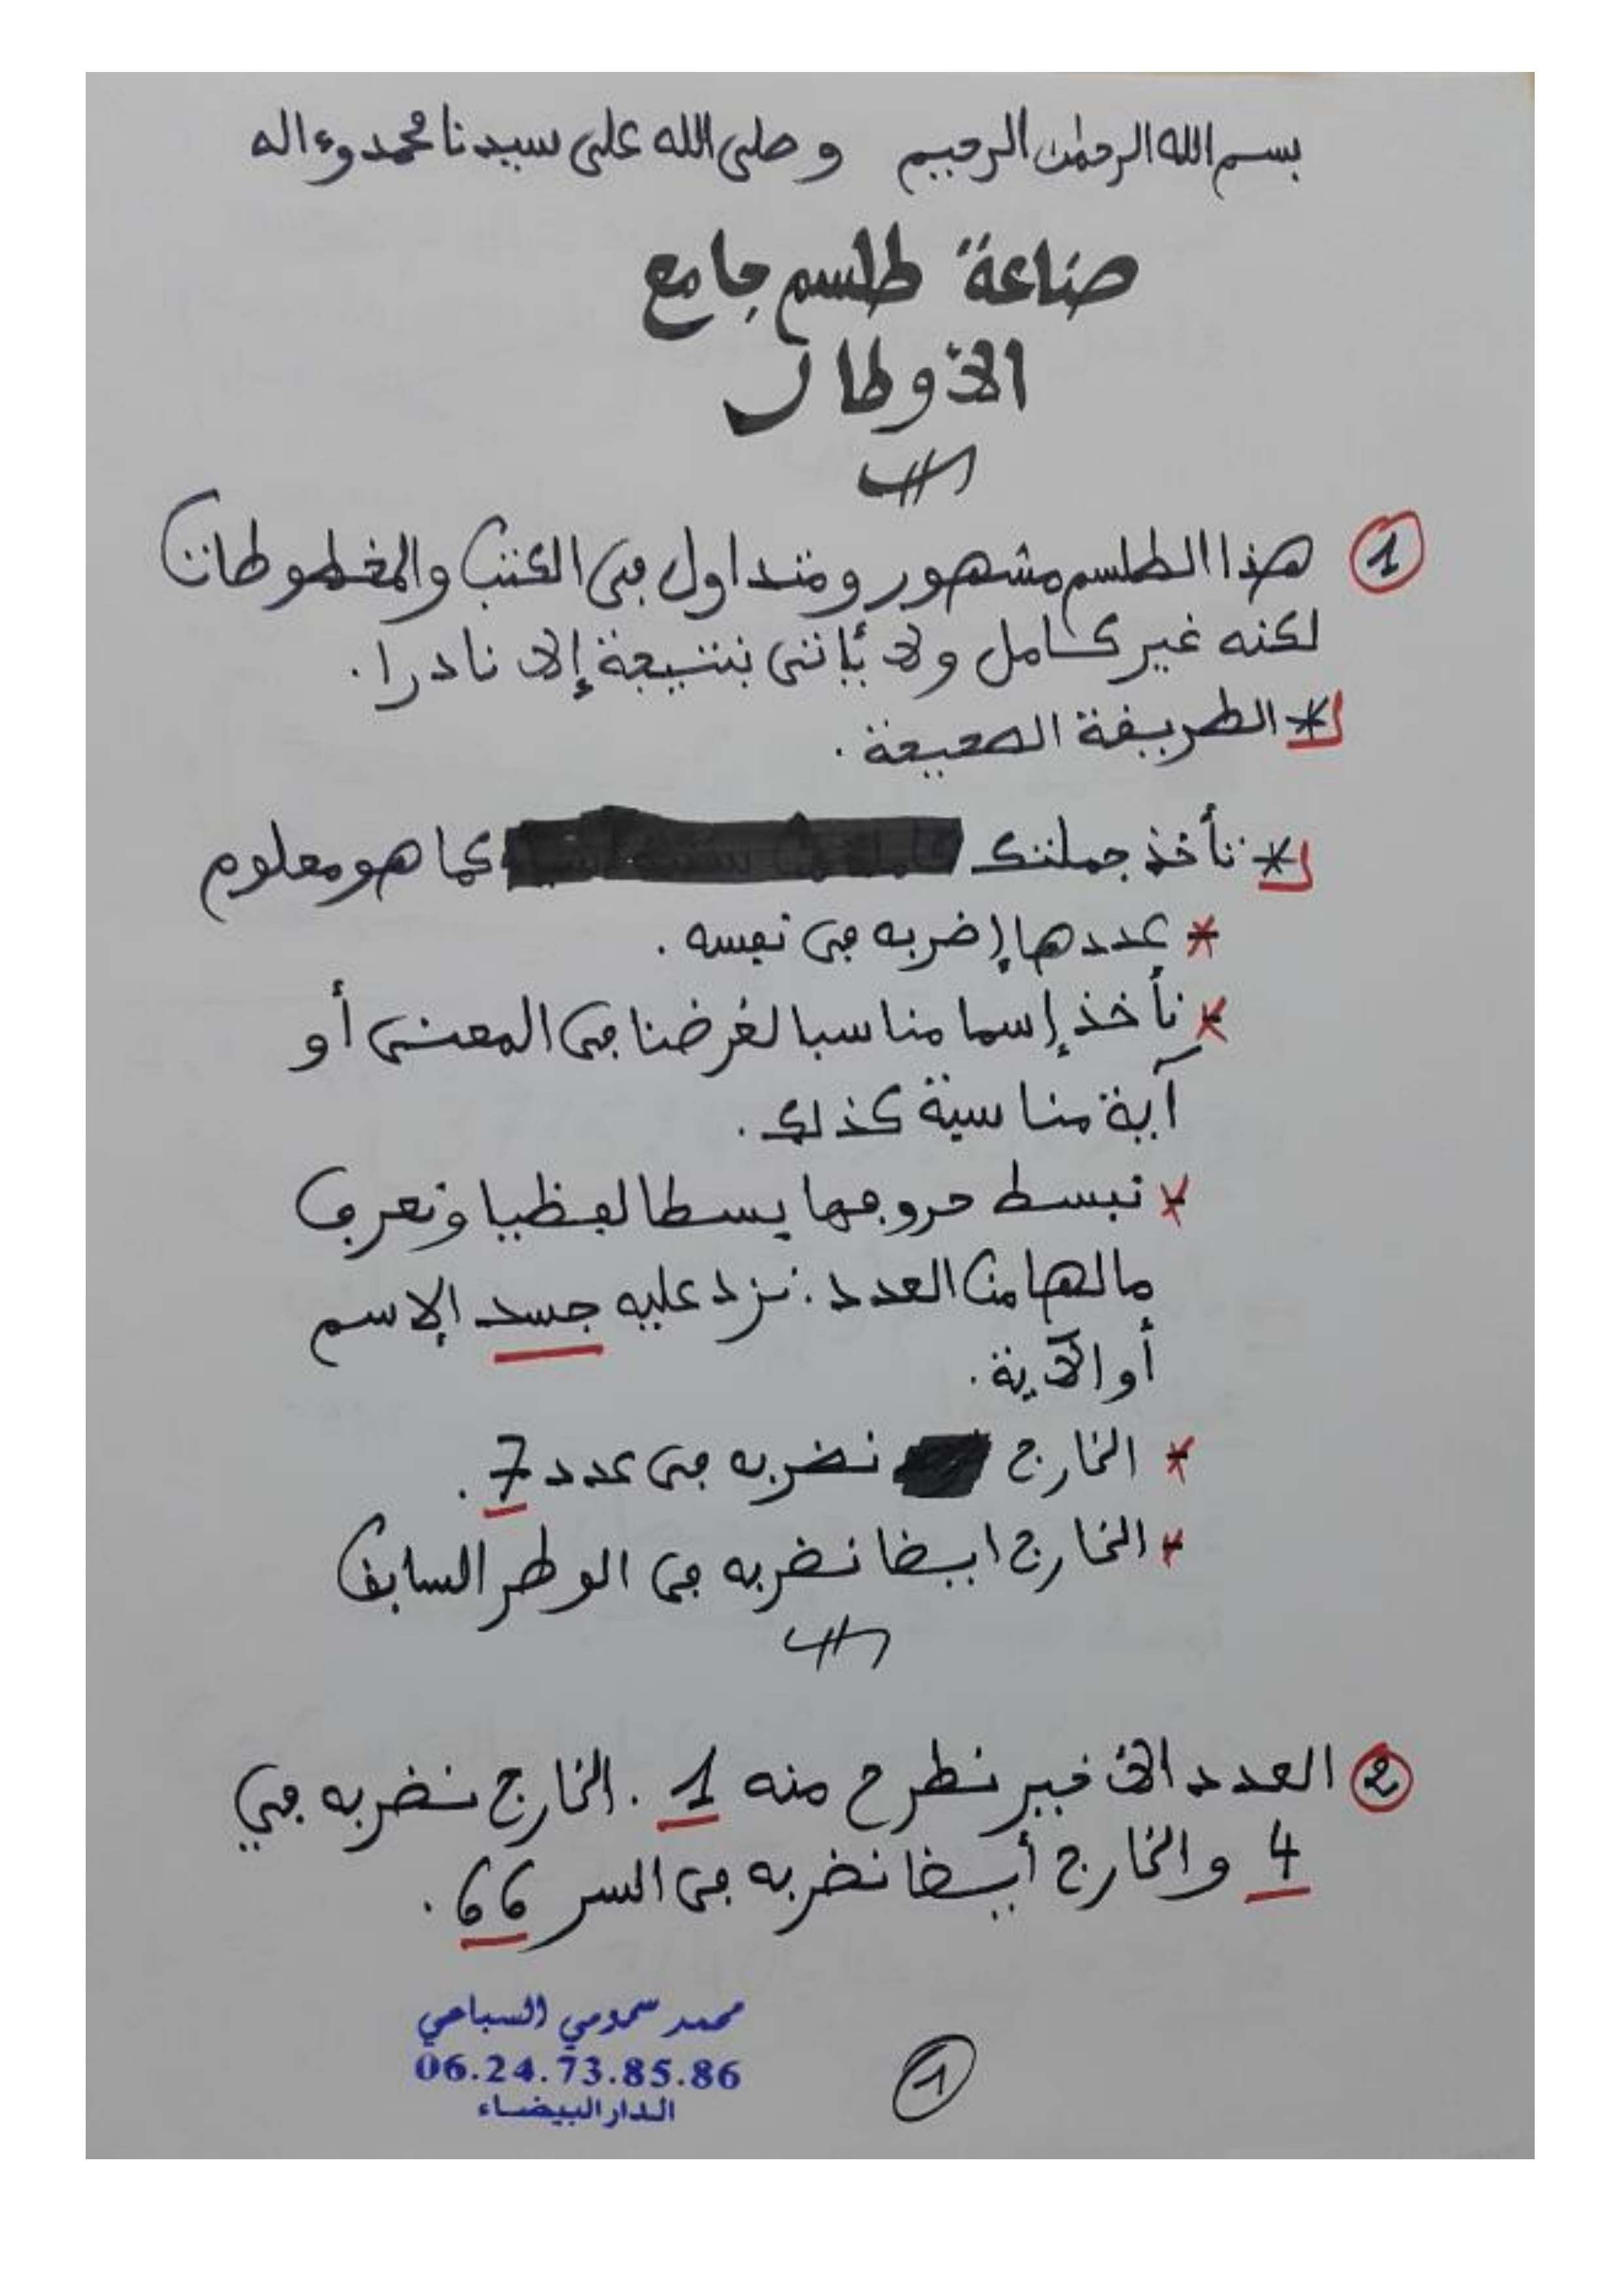 بسم الله الرحمٰن الرحيم وصلى الله على سيدنا محمد وءاله
صناعة طلسم جامع
الأوطار
① هذا الطلسم مشهور ومتداول في الكتب والمخطوطات
لكنه غير كامل ولا يأتي بنتيجة إلا نادرا.
* الطريقة الصحيحة.
* تأخذ جملتك كما هو معلوم
* عددها إضربه في نفسه.
* نأخذ إسما مناسبا لغرضنا في المعنى أو
آية مناسبة كذلك.
* نبسط حروفها بسطا لفظيا ونعرف
مالها من العدد. نزد عليه جسد الإسم
أو الآية.
* الخارج نضربه في عدد 7.
* الخارج ايضا نضربه في الوطر السابق
② العدد الأخير نطرح منه 1. الخارج نضربه في
4 والخارج أيضا نضربه في السر 66.
محمد سمومي السباعي
06.24.73.85.86
الدار البيضاء
①